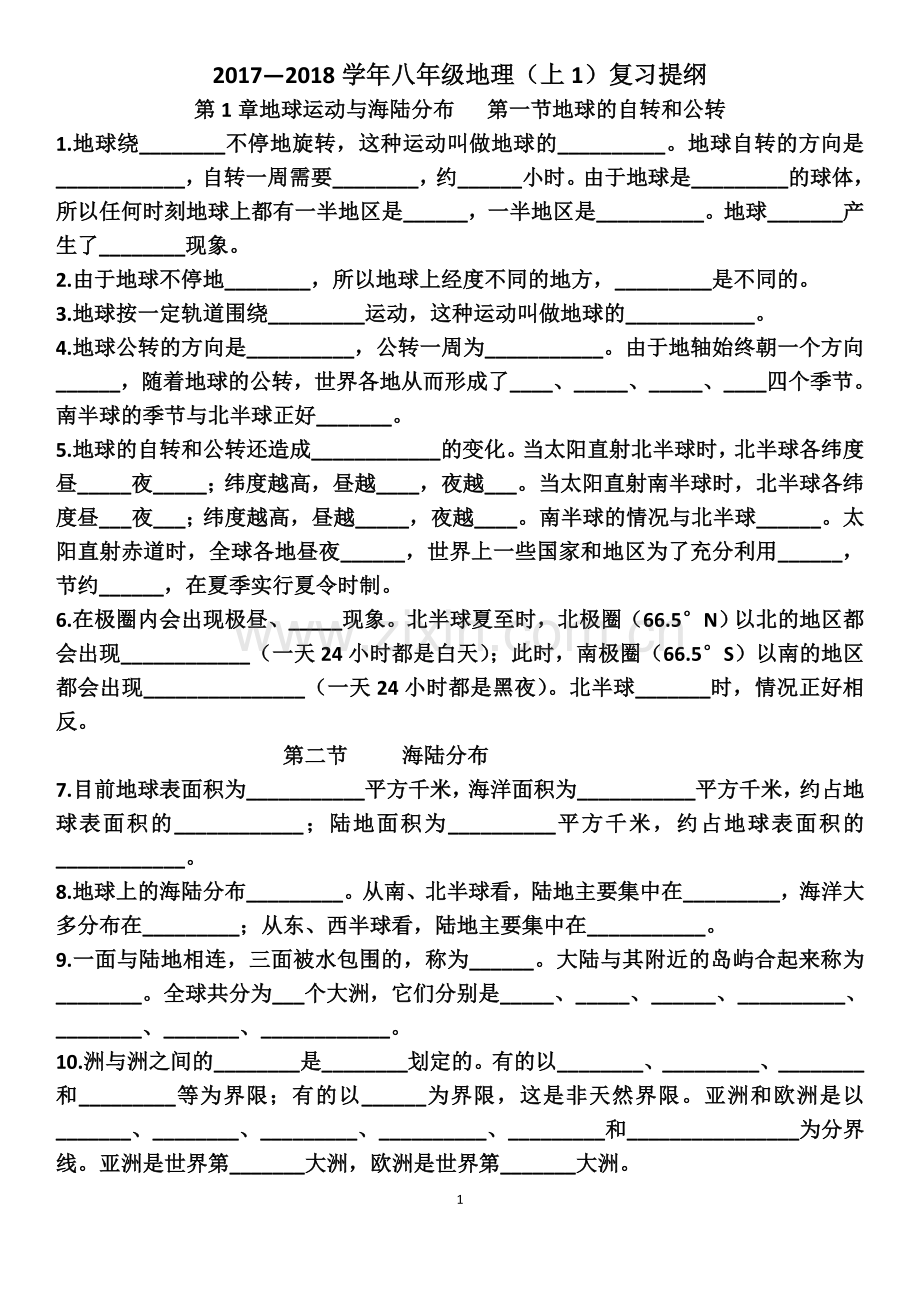 2017—2018 学年八年级地理（上 1）复习提纲
第 1 章地球运动与海陆分布 第一节地球的自转和公转
1.地球绕________不停地旋转，这种运动叫做地球的__________。地球自转的方向是
____________，自转一周需要________，约______小时。由于地球是_________的球体，
所以任何时刻地球上都有一半地区是______，一半地区是__________。地球_______产
生了________现象。
2.由于地球不停地________，所以地球上经度不同的地方，_________是不同的。
3.地球按一定轨道围绕_________运动，这种运动叫做地球的____________。
4.地球公转的方向是__________，公转一周为___________。由于地轴始终朝一个方向
______，随着地球的公转，世界各地从而形成了____、_____、_____、____四个季节。
南半球的季节与北半球正好_______。
5.地球的自转和公转还造成____________的变化。当太阳直射北半球时，北半球各纬度
昼_____夜_____；纬度越高，昼越____，夜越___。当太阳直射南半球时，北半球各纬
度昼___夜___；纬度越高，昼越_____，夜越____。南半球的情况与北半球______。太
阳直射赤道时，全球各地昼夜______，世界上一些国家和地区为了充分利用______，
节约______，在夏季实行夏令时制。
6.在极圈内会出现极昼、_____现象。北半球夏至时，北极圈（66.5°N）以北的地区都
会出现____________（一天 24 小时都是白天）；此时，南极圈（66.5°S）以南的地区
都会出现_______________（一天 24 小时都是黑夜）。北半球_______时，情况正好相
反。
www.zixin.com.cn
第二节 海陆分布
7.目前地球表面积为___________平方千米，海洋面积为___________平方千米，约占地
球表面积的____________；陆地面积为__________平方千米，约占地球表面积的
____________。
8.地球上的海陆分布_________。从南、北半球看，陆地主要集中在_________，海洋大
多分布在_________；从东、西半球看，陆地主要集中在___________。
9.一面与陆地相连，三面被水包围的，称为______。大陆与其附近的岛屿合起来称为
________。全球共分为___个大洲，它们分别是_____、_____、______、__________、
________、_______、____________。
10.洲与洲之间的________是________划定的。有的以________、_________、________
和_________等为界限；有的以______为界限，这是非天然界限。亚洲和欧洲是以
_______、________、_________、__________、_________和________________为分界
线。亚洲是世界第_______大洲，欧洲是世界第_______大洲。
1